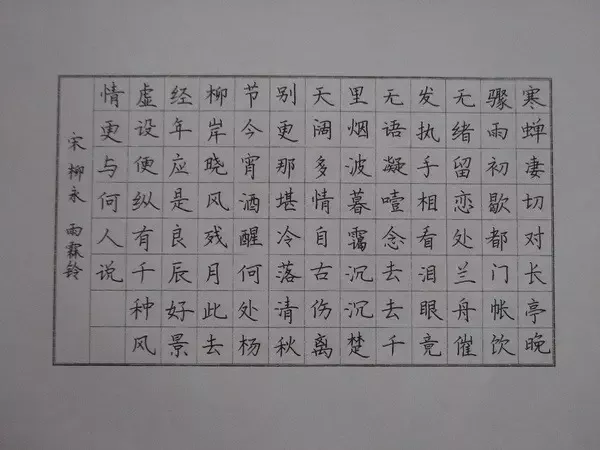 寒蝉凄切对长亭晚
骤雨初歇都门帐饮
无绪留恋处兰舟催
发执手相看泪眼竟
无语凝噎念去去千
里烟波暮霭沉沉楚
天阔多情自古伤离
别更那堪冷落清秋
节今宵酒醒何处杨
柳岸晓风残月此去
经年应是良辰好景
虚设便纵有千种风
情更与何人说
宋 柳永 雨霖铃